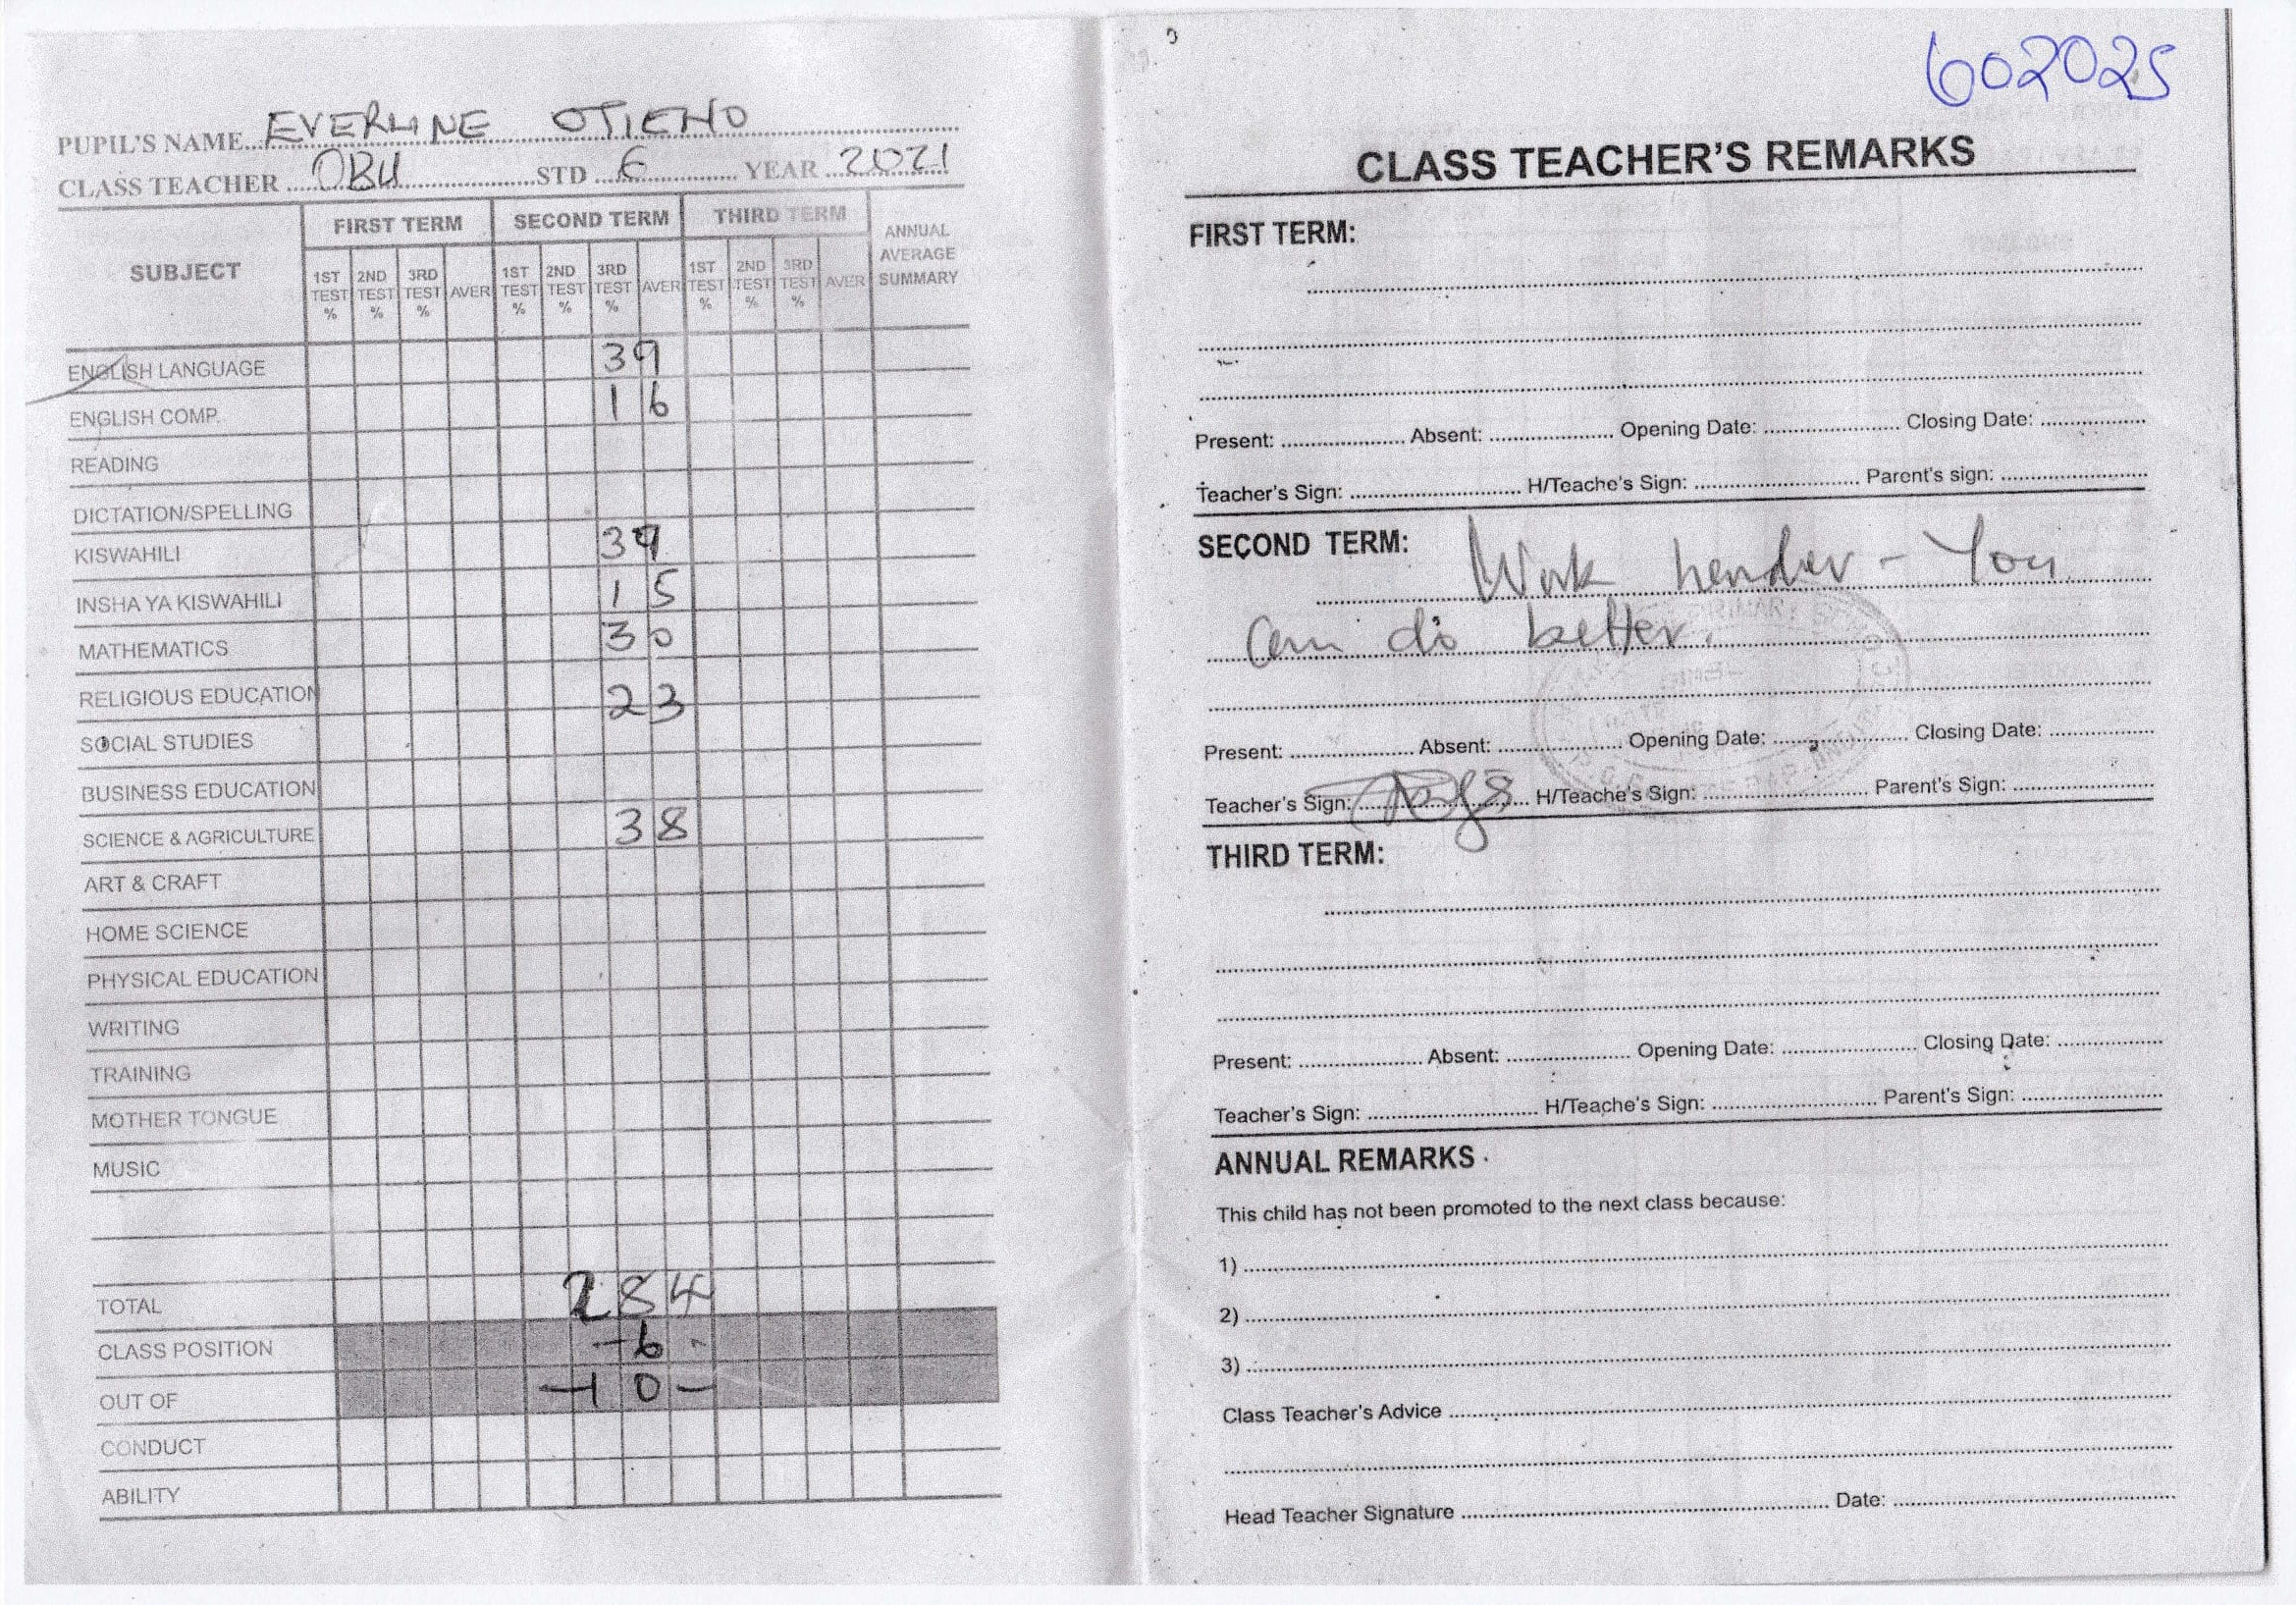 602025
PUPIL'S NAME EVERLINE OTIENO
CLASS TEACHER OBU STD 6 YEAR 2021
SUBJECT FIRST TERM SECOND TERM THIRD TERM ANNUAL AVERAGE SUMMARY
1ST TEST % 2ND TEST % 3RD TEST % AVER 1ST TEST % 2ND TEST % 3RD TEST % AVER 1ST TEST % 2ND TEST % 3RD TEST % AVER
ENGLISH LANGUAGE 39
ENGLISH COMP. 16
READING
DICTATION/SPELLING
KISWAHILI 39
INSHA YA KISWAHILI 15
MATHEMATICS 30
RELIGIOUS EDUCATION 23
SOCIAL STUDIES
BUSINESS EDUCATION
SCIENCE & AGRICULTURE 38
ART & CRAFT
HOME SCIENCE
PHYSICAL EDUCATION
WRITING
TRAINING
MOTHER TONGUE
MUSIC
TOTAL 284
CLASS POSITION -6-
OUT OF -10-
CONDUCT
ABILITY
CLASS TEACHER'S REMARKS
FIRST TERM:
Present: Absent: Opening Date: Closing Date:
Teacher's Sign: H/Teache's Sign: Parent's sign:
SECOND TERM: Work harder - You
can do better.
Present: Absent: Opening Date: Closing Date:
Teacher's Sign: H/Teache's Sign: Parent's Sign:
THIRD TERM:
Present: Absent: Opening Date: Closing Date:
Teacher's Sign: H/Teache's Sign: Parent's Sign:
ANNUAL REMARKS
This child has not been promoted to the next class because:
1)
2)
3)
Class Teacher's Advice
Head Teacher Signature Date: